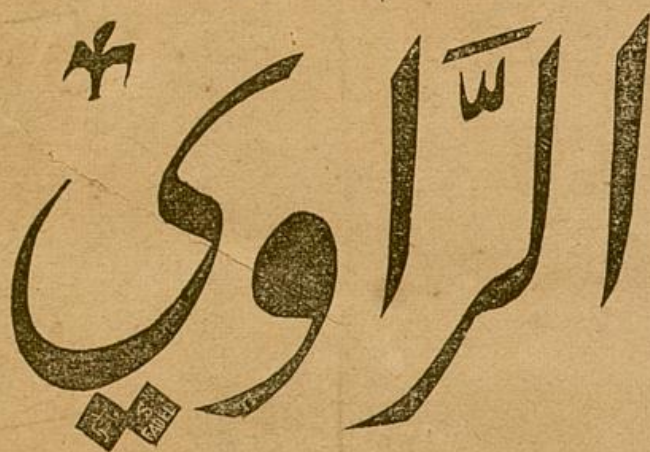 الرَّاوي